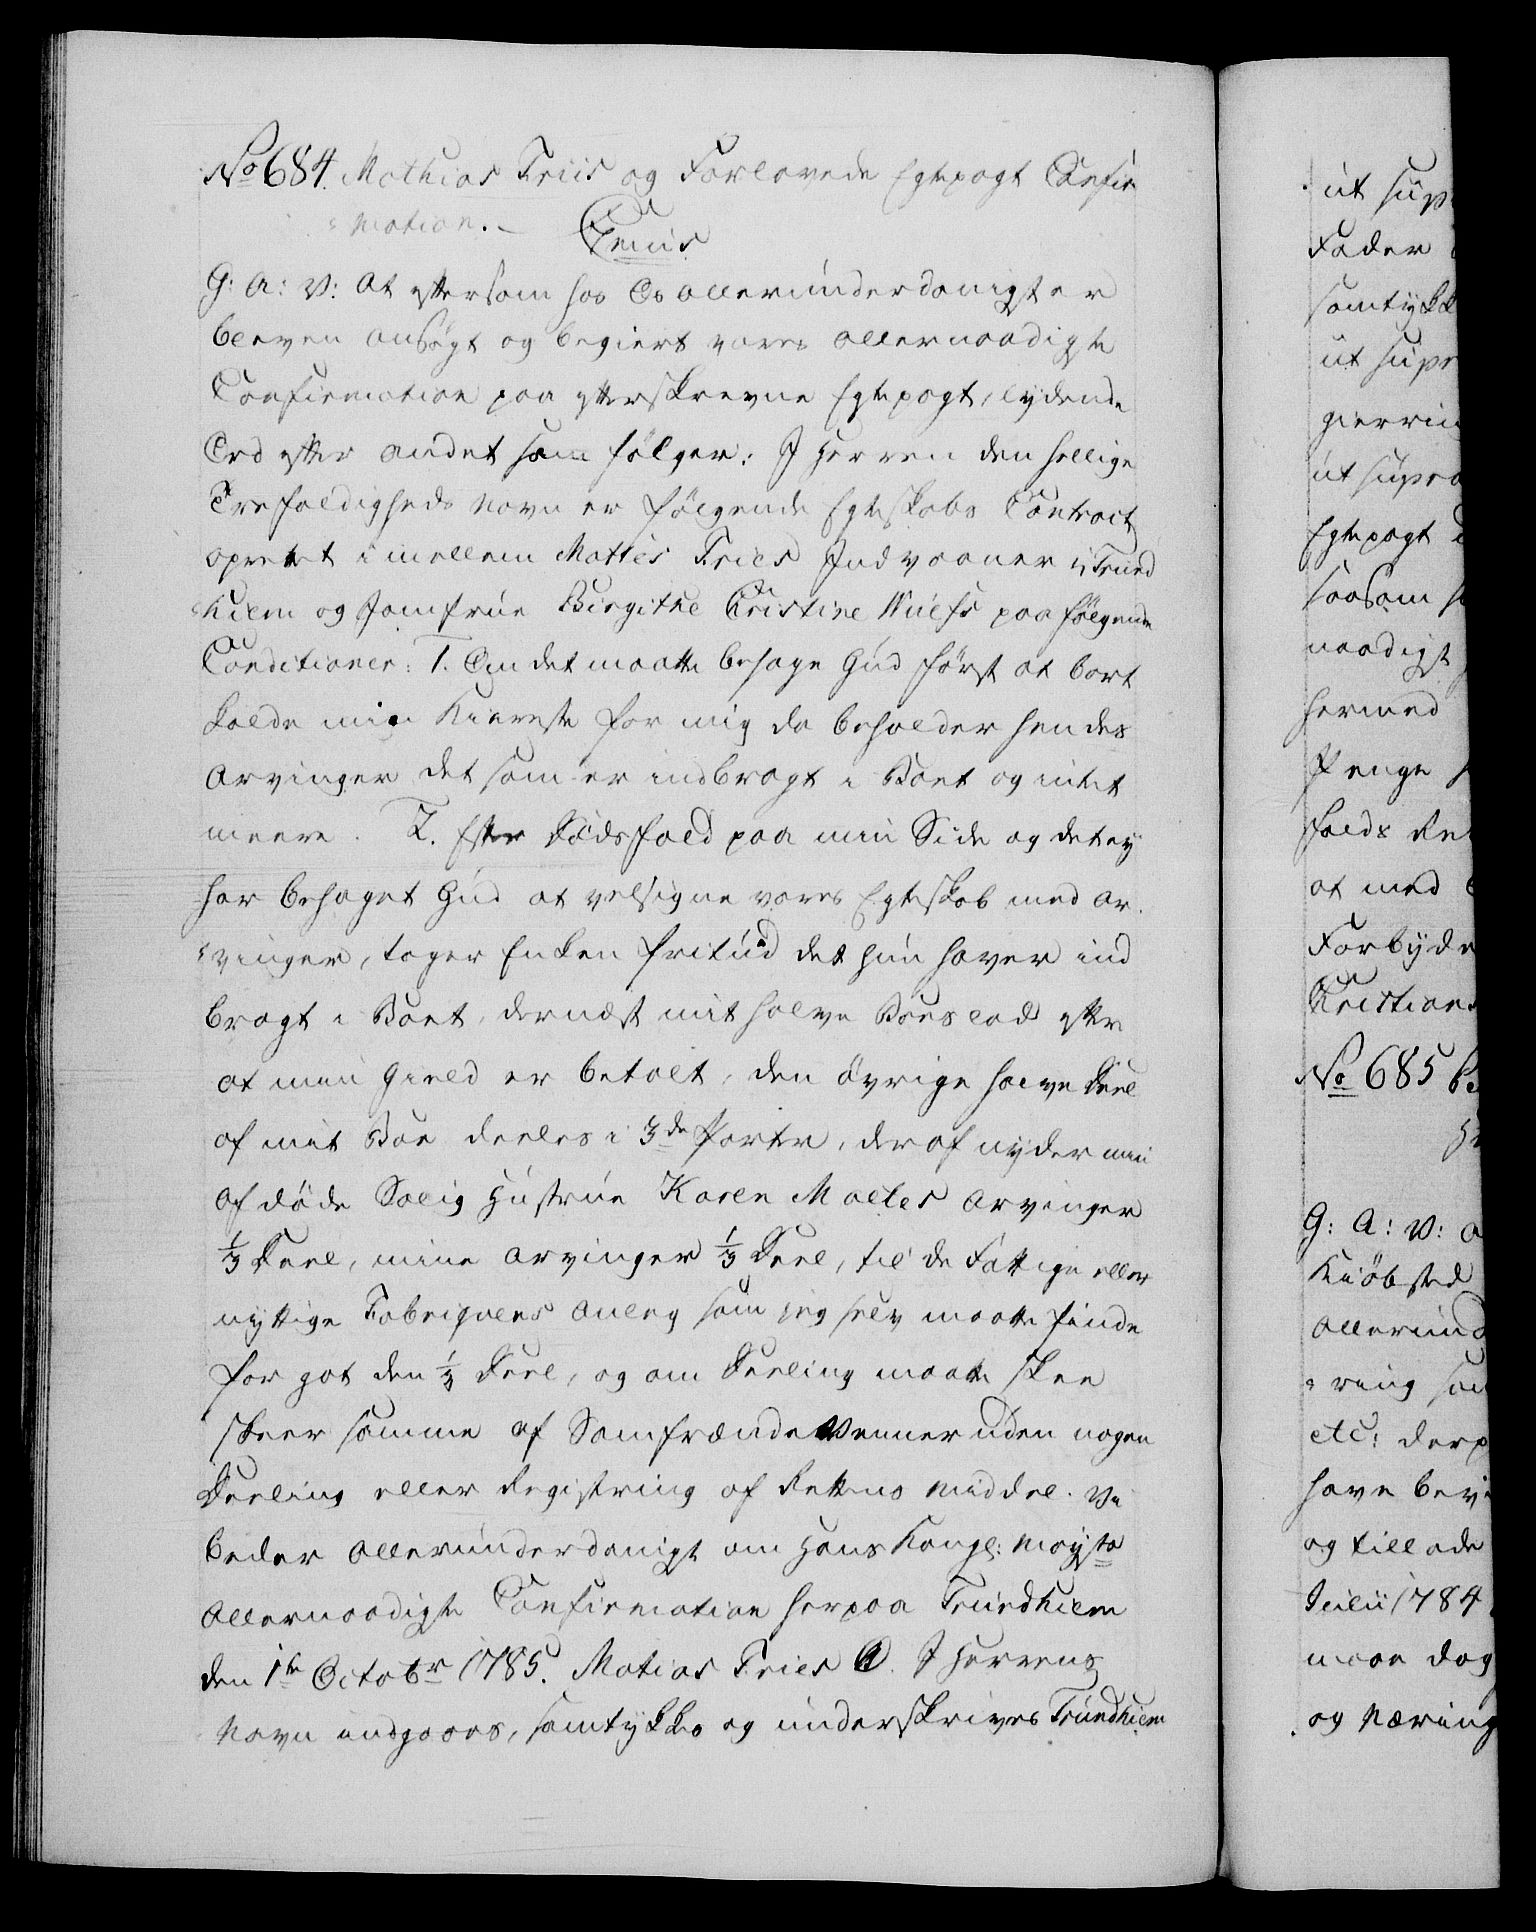 No 684. Mathias Friis og Forlovede Egtepagt Confir
mation. –
Gratis
G: A: V: At eftersom hos Os allerunderdanigst er
bleven ansøgt og begiert vores allernaadigste
Confirmation paa efterskrevne Egtepagt, lydende
Ord efter andet som følger: J Herren den hellige
Trefoldigheds Navn er følgende Egteskabs Contract
oprettet imellem Matties Fries Indvaaner i Trund
hiem og Jomfrue Birgithe Cristine Wulfs paa følgende
Conditioner: 1. Om det maatte behage Gud først at bort
kalde min Kiereste for mig da beholder hendes
Arvinger det som er indbragt i Boet og intet
meere. 2. Efter Dødsfald paa min Side og det ey
har behaget Gud at velsigne vores Egteskab med Ar
vinger, tager Enken frit ud det hun haver ind
bragt i Boet, dernæst mit halve Boeslod efter
at min Gield er betalt, den øvrige halve Deel
af mit Boe deeles i 3de Parter, deraf nyder min
afdøde Salig Hustrue Karen Maltes Arvinger
1/3 Deel, mine Arvinger 1/3 Deel, til de Fattige eller
nyttige Fabriqvers Anleg som jeg selv maatte finde
for got den 1/3 Deel, og om Deeling maatte skee
skeer samme af Samfrænde Venner uden nogen
Deeling eller Registring af Rettens Middel. Vi
beder allerunderdanigst om Hans Kongl: Mayts
Allernaadigste Confirmation herpaa Trundhiem
den 1te Octobr 1785. Matias Fries J Herrens
Navn indgaaes, samtykkes og underskrives Trundhiem
ut sup
Fader
samtykke
ut supr
gierrin
ut supra
Egtepagt
saasom
naadigst
hermed
Penge
falds
at med
Forbyde
Christians
No 685
G: A: V: a
Kiøbsted
allerund
ring
etc: derp
have bev
og tillade
Julii 1784
maae dog
og Næring